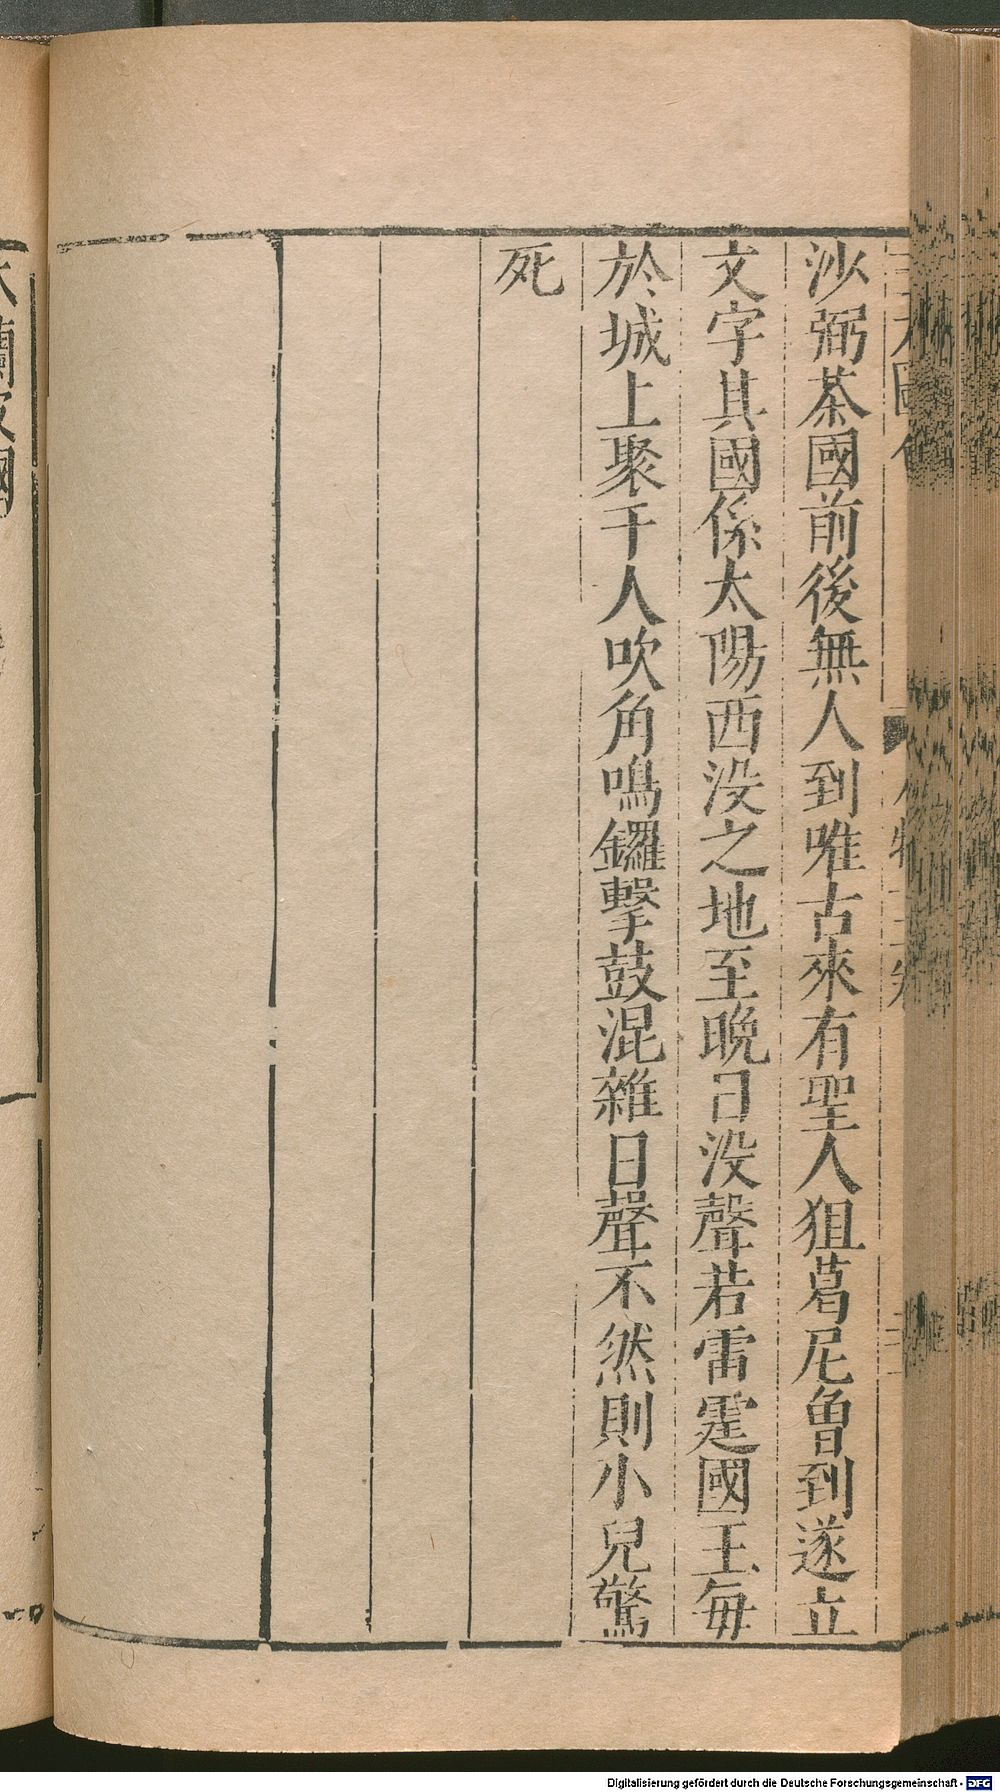 沙弼茶國前後無人到唯古來有聖人狙葛尼曾到遂立
文字其國係太陽西没之地至晚日没聲若雷霆國王每
於城上聚千人吹角鳴鑼擊鼓混雜日聲不然則小兒驚
死
木蘭皮國
Digitalisierung gefördert durch die Deutsche Forschungsgemeinschaft - DFG